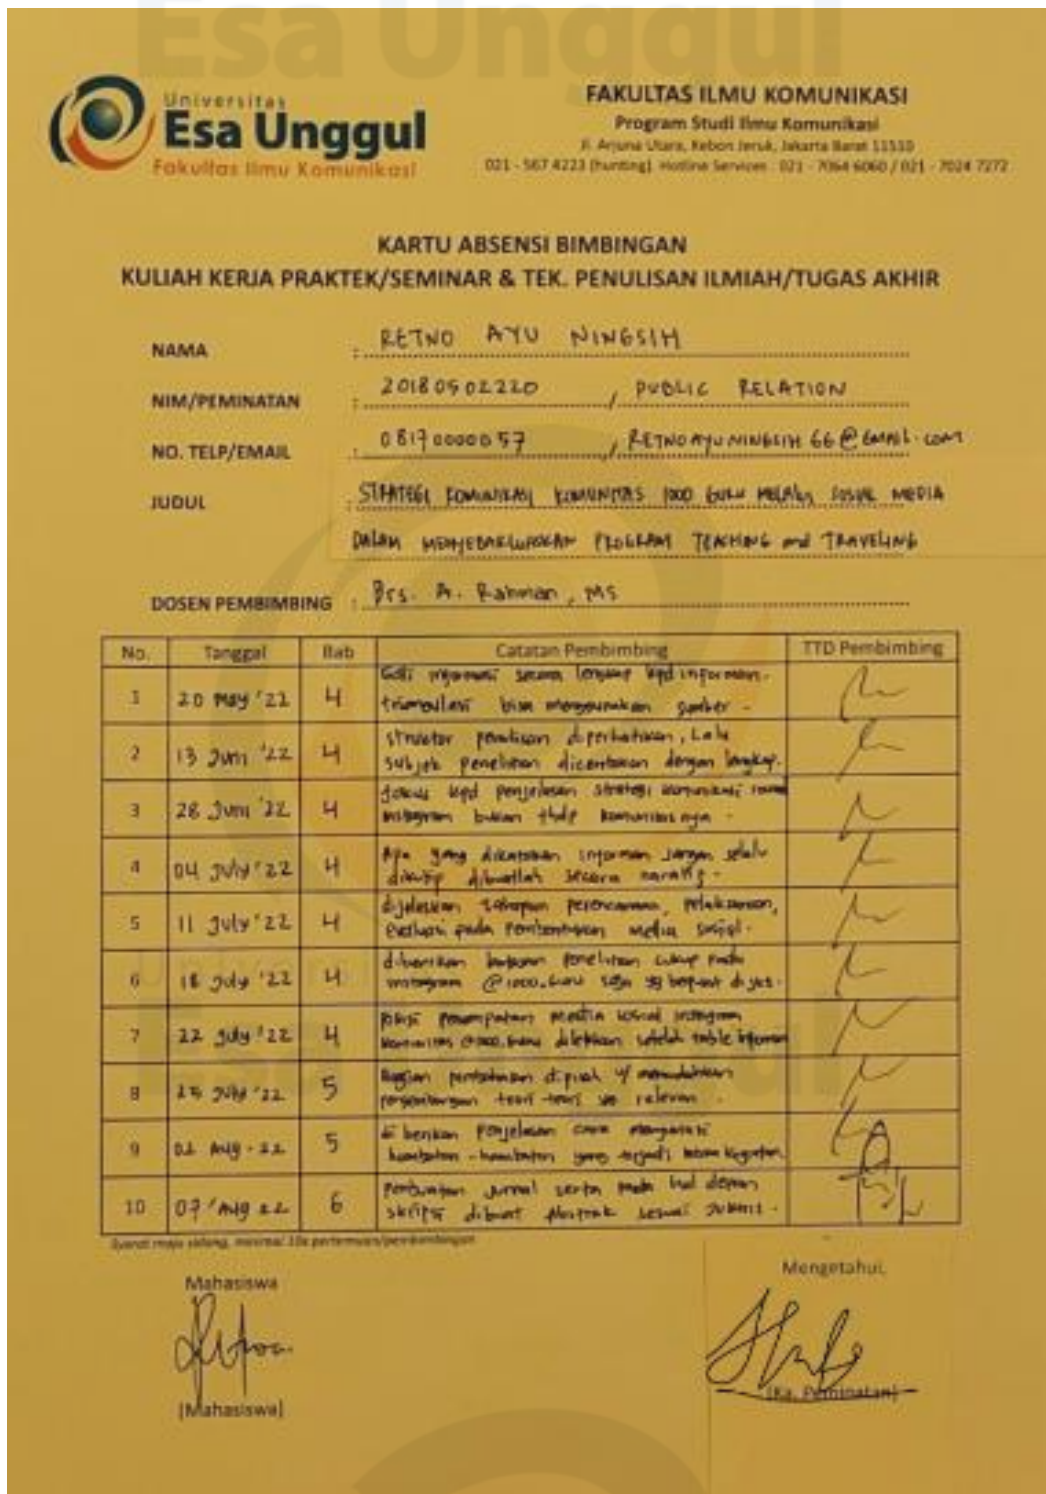 Esa Unggul
Universitas
Esa Unggul
Fakultas Ilmu Komunikasi
FAKULTAS ILMU KOMUNIKASI
Program Studi Ilmu Komunikasi
Jl. Arjuna Utara, Kebon Jeruk, Jakarta Barat 11510
021 - 567 4223 (hunting) Hotline Services : 021 - 7064 6060 / 021 - 7024 7272
KARTU ABSENSI BIMBINGAN
KULIAH KERJA PRAKTEK/SEMINAR & TEK. PENULISAN ILMIAH/TUGAS AKHIR
NAMA : RETNO AYU NINGSIH
NIM/PEMINATAN : 20180502220 / PUBLIC RELATION
NO. TELP/EMAIL : 08170000057 / RETNOAYUNINGSIH66@GMAIL.COM
JUDUL : STRATEGI KOMUNIKASI KOMUNITAS 1000 GURU MELALUI SOSIAL MEDIA
DALAM MENYEBARLUASKAN PROGRAM TEACHING and TRAVELING
DOSEN PEMBIMBING : Drs. A. Rahman, MS
No. Tanggal Bab Catatan Pembimbing TTD Pembimbing
1 20 May '22 4 Gali informasi secara lengkap kpd informan.
triangulasi bisa menggunakan sumber -
2 13 Juni '22 4 struktur penulisan diperhatikan, Lalu
subjek penelitian dicantumkan dengan lengkap.
3 28 Juni '22 4 fokus kpd penjelasan strategi komunikasi
instagram bukan thdp komunitasnya -
4 04 July '22 4 Apa yang dikatakan informan jangan selalu
dikutip dibuatlah secara naratif -
5 11 July '22 4 dijelaskan tahapan perencanaan, pelaksanaan,
evaluasi pada media sosial.
6 18 July '22 4 diberikan batasan penelitian cukup pada
instagram @1000.guru saja
7 22 July '22 4 penempatan media sosial instagram
komunitas @1000.guru diletakkan setelah table informan
8 25 July '22 5 Bagian pembahasan dipisah
teori-teori yg relevan .
9 02 Aug - 22 5 di berikan penjelasan cara mengatasi
hambatan - hambatan yang terjadi kegiatan
10 07 Aug 22 6 Pembuatan jurnal serta pada hal depan
skripsi dibuat Abstrak sesuai
Syarat maju sidang, minimal 10x pertemuan/pembimbingan
Mahasiswa
Mengetahui,
(Mahasiswa)
(Ka. Peminatan)